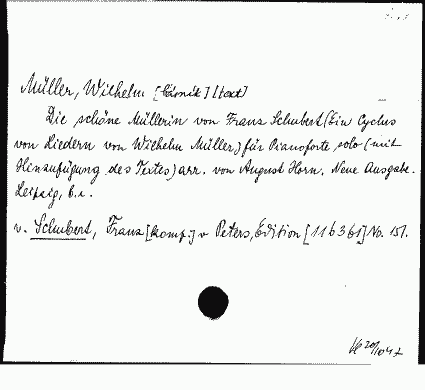 Müller, Wilhelm [básník] [text]
Die schöne Müllerin von Franz Schubert (Ein Cyclus
von Liedern von Wilhelm Müller) für Pianoforte solo (mit
Hinzufügung des Textes) arr. von August Horn. Neue Ausgabe.
Leipzig, b.r.
v. Schubert, Franz [komp.] v Peters, Edition [116361] No. 151.